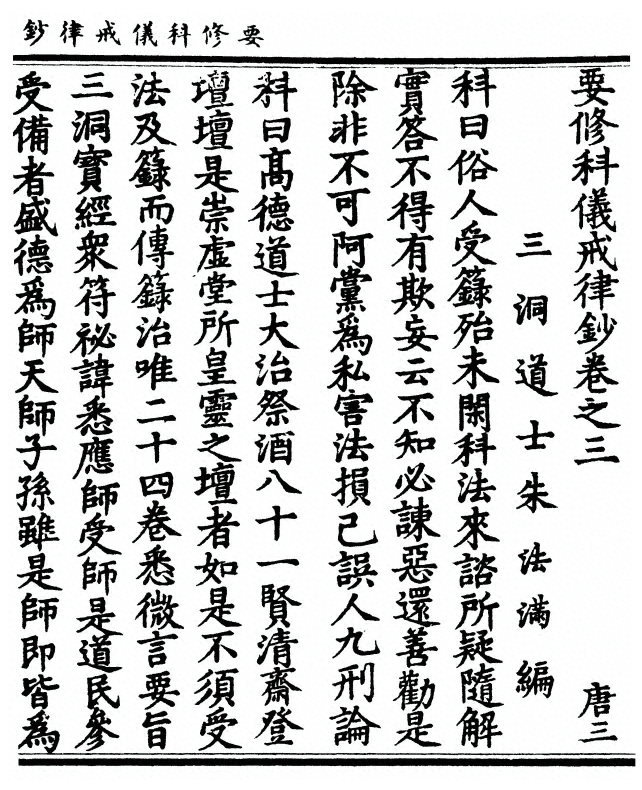 要修科儀戒律鈔
要修科儀戒律鈔卷之三 唐三
三洞道士朱法滿編
科曰俗人受籙殆未閑科法來諮所疑隨解
實答不得有欺妄云不知必諫惡還善勸是
除非不可阿黨爲私害法損己誤人九刑論
科曰高德道士大治祭酒八十一賢清齋登
壇壇是崇虛堂所皇靈之壇者如是不須受
法及籙而傳籙治唯二十四卷悉微言要旨
三洞寶經衆符祕諱悉應師受師是道民參
受備者盛德爲師天師子孫雖是師即皆爲